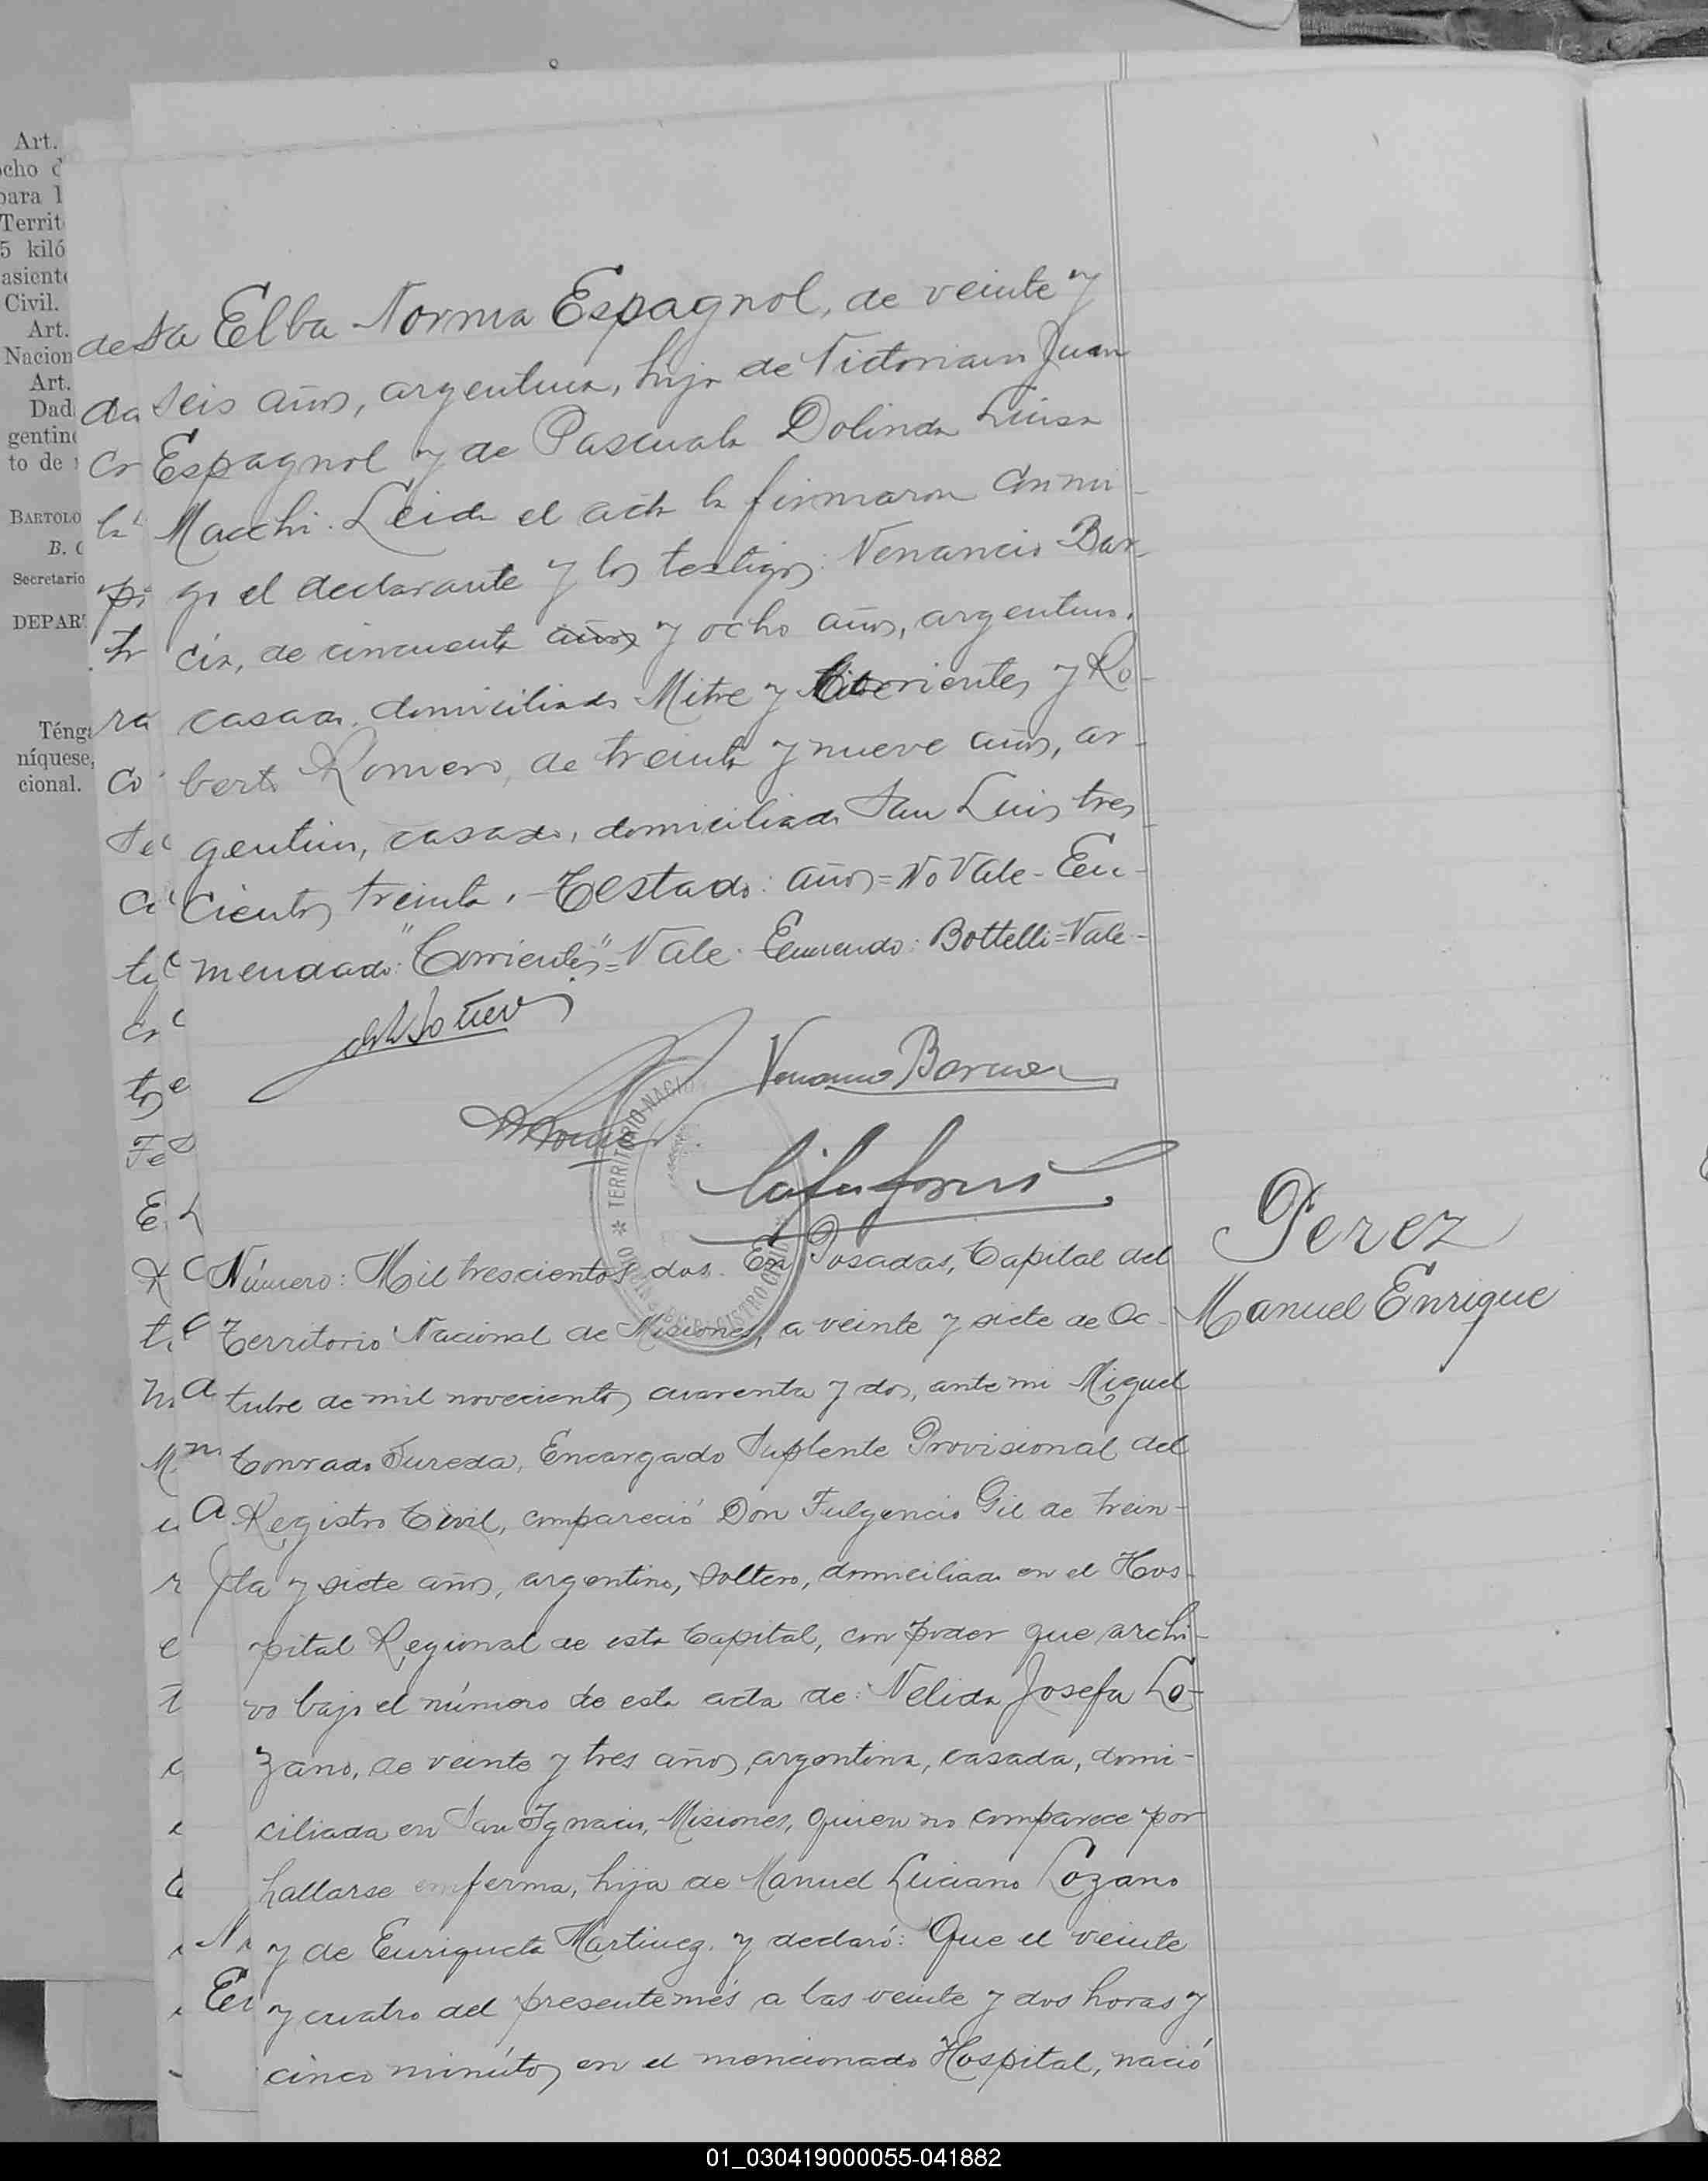 Art.
Territ
5 kiló
Civil.
Art.
Nacion
Art.
to de
BARTOLO
B.
Secretario
DEPAR
níquese,
cional.
sa Elba Norma Espagnol, de veinte y
seis años, argentina, hija de Victoriano Juan
Espagnol y de Pascuala Dolinda Luisa
Macchi. Leida el acta la firmaron conmi-
go el declarante y los testigos: Venancio Bar-
cia, de cincuenta años y ocho años, argentino,
casado, domiciliado Mitre y Corrientes y Ro-
berto Romero, de treinta y nueve años, ar-
gentino, casado, domiciliado San Luis tres
cientos treinta. - Testado: años = No Vale - En-
mendado: "Corrientes" = Vale. Enmendo: Bottelli = Vale -
Venancio Barcia
TERRITORIO NACIO
REGISTRO CIVIL
Número: Mil trescientos dos. En Posadas, Capital del
Territorio Nacional de Misiones, a veinte y siete de Oc-
tubre de mil novecientos cuarenta y dos, ante mi Miguel
Conrado Sureda, Encargado Suplente Provisional del
Registro Civil, compareció Don Fulgencio Gil de trein-
ta y siete años, argentino, soltero, domiciliado en el Hos-
pital Regional de esta Capital, con poder que archi-
vo bajo el número de esta acta de: Nelida Josefa Lo-
zano, de veinte y tres años, argentina, casada, domi-
ciliada en San Ignacio, Misiones, quien no comparece por
hallarse enferma, hija de Manuel Luciano Lozano
y de Enriqueta Martinez, y declaró: Que el veinte
y cuatro del presente més a las veinte y dos horas y
cinco minútos en el mencionado Hospital, nació
Perez
Manuel Enrique
01_030419000055-041882